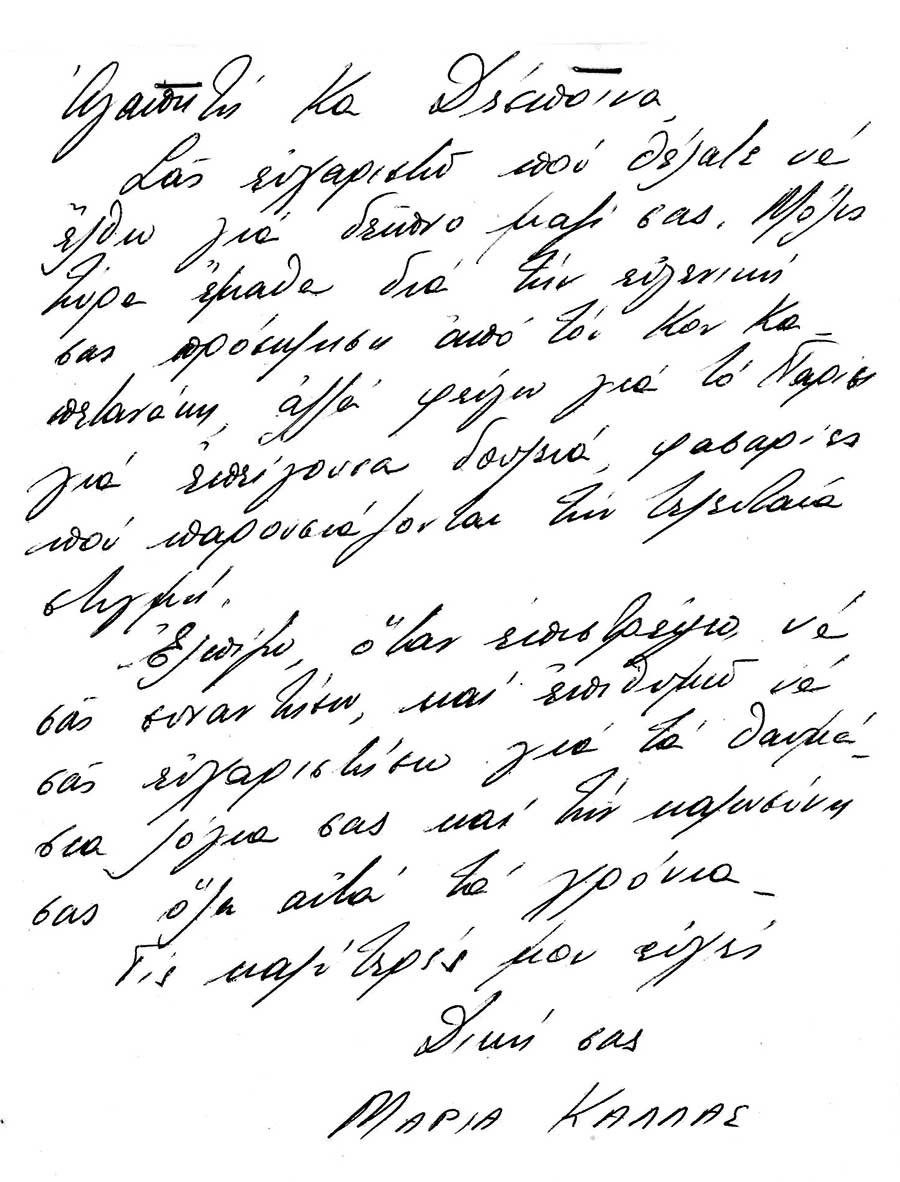 Ἀγαπητή Κα Δέσποινα,
Σᾶς εὐχαριστῶ πού θέλατε νά
ἔλθω γιά δεῖπνο μαζί σας. Μόλις
τώρα ἔμαθα διά τήν εὐγενική
σας πρόσκληση ἀπό τόν Κον Κα-
πετανάκη, ἀλλά φεύγω γιά τό Παρίσι
γιά ἐπείγουσα δουλειά, φασαρίες
πού παρουσιάζονται τήν τελευταία
στιγμή.
Ἐλπίζω, ὅταν ἐπιστρέψω, νά
σᾶς συναντήσω, καί ἐπιθυμῶ νά
σᾶς εὐχαριστήσω γιά τά θαυμά-
σια λόγια σας καί τήν καλωσύνη
σας ὅλα αὐτά τά χρόνια_
Τίς καλύτερές μου εὐχές
Δική σας
ΜΑΡΙΑ ΚΑΛΛΑΣ